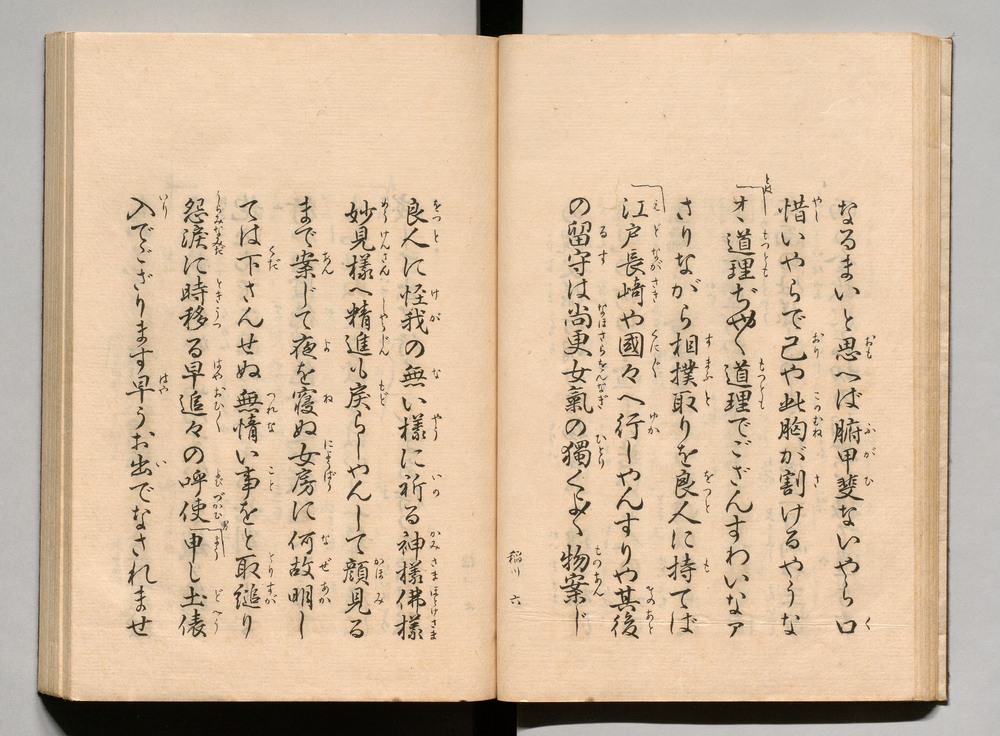 なるまいと思へば腑甲斐ないやら口
惜いやらで己や此胸が割けるやうな
オヽ道理ぢや〱道理でござんすわいなァ
さりながら相撲取りを良人に持てば
江戸長崎や國々へ行しやんすりや其後
の留守は尚更女氣の獨くよ〱物案じ
稲川 六
良人に怪我の無い様に祈る神様佛様
妙見様へ精進も戻らしやんして顔見る
まで案じて夜を寝ぬ女房に何故明し
ては下さんせぬ無情い事をと取縋り
怨涙に時移る早追々の呼使申し土俵
入でござります早うお出でなされませ